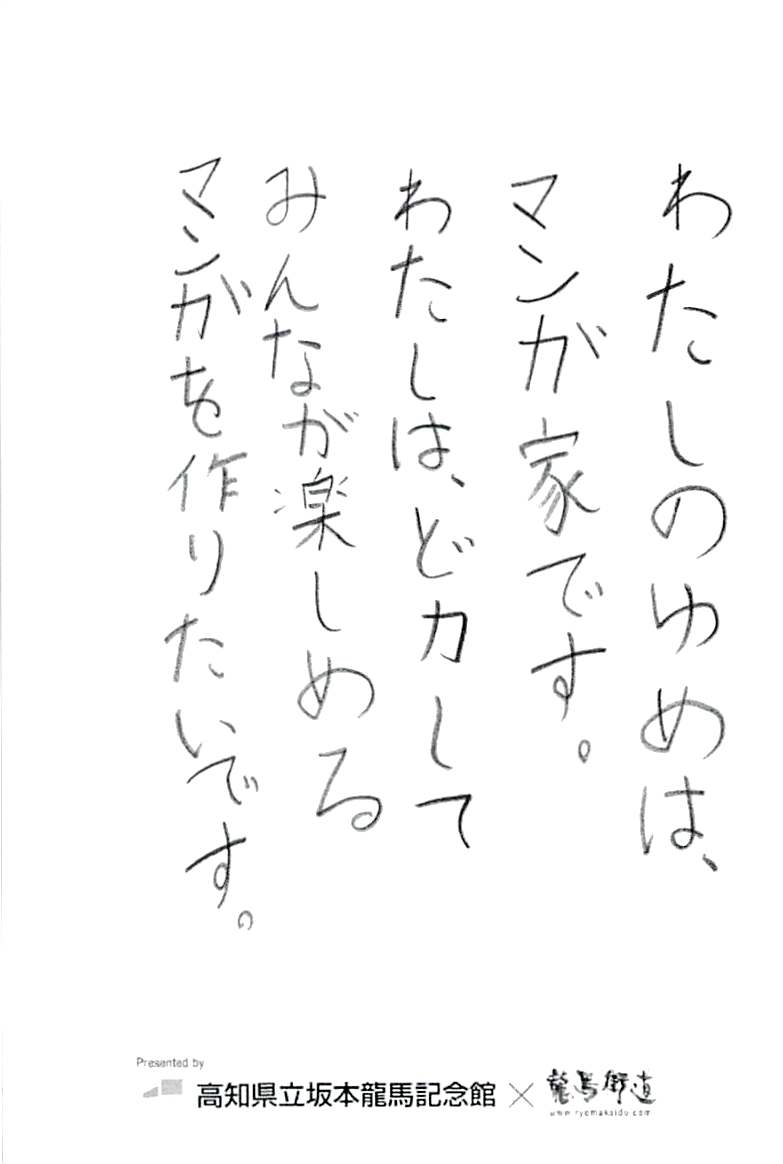 わたしのゆめは、
マンが家です。
わたしは、ど力して
みんなが楽しめる
マンガを作りたいです。
Presented by
高知県立坂本龍馬記念館×龍馬街道
www.ryomakaido.com